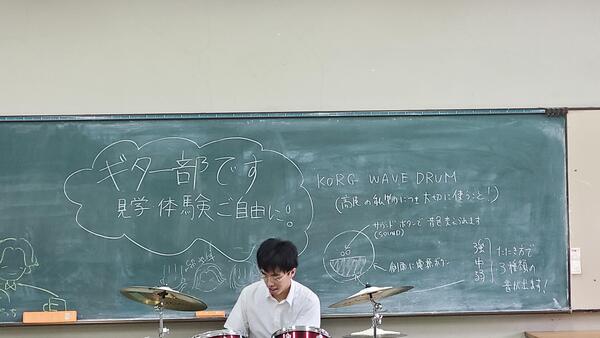 ギター部です
見学体験ご自由に!!
KORG WAVE DRUM
(高尾の私物につき大切に使うこと!)
サウンドボタンで音色変えられます
(SOUND)
側面に電源ボタン
強
中
弱
たたき方で
3種類の
音が出ます!